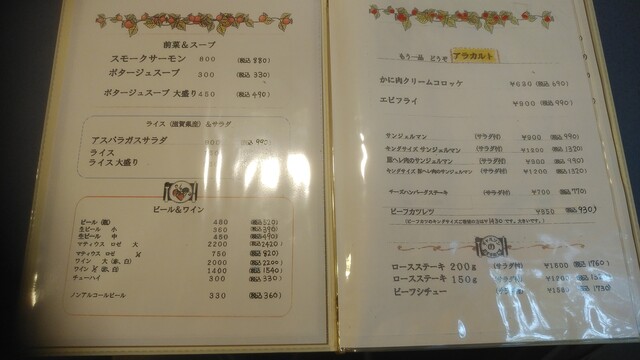 前菜&スープ
スモークサーモン 800 (税込 880)
ポタージュスープ 300 (税込 330)
ポタージュスープ 大盛り 450 (税込 490)
ライス(滋賀県産)&サラダ
アスパラガスサラダ 900 (税込 990)
ライス
ライス大盛り
ビール&ワイン
ビール (瓶) 480 (税込520)
生ビール 小 360 (税込390)
生ビール 中 450 (税込490)
マティウス ロゼ 大 2200 (税込2420)
マティウス ロゼ ½ 750 (税込820)
ワイン 大 (赤、白) 2000 (税込2200)
ワイン ½ (赤、白) 1400 (税込1540)
チューハイ 300 (税込330)
ノンアルコールビール 330 (税込360)
もう一品 どうぞ アラカルト
かに肉クリームコロッケ ¥630 (税込 690)
エビフライ ¥900 (税込 990)
サンジェルマン (サラダ付) ¥900 (税込 990)
キングサイズ サンジェルマン (サラダ付) ¥1200 (税込 1320)
豚ヘレ肉のサンジェルマン (サラダ付) ¥900 (税込 990)
キングサイズ 豚ヘレ肉のサンジェルマン (サラダ付) ¥1200 (税込 1320)
チーズハンバーグステーキ (サラダ付) ¥700 (税込 770)
ビーフカツレツ ¥850 (税込 930)
(ビーフカツのキングサイズご
の
ロースステーキ 200g (サラダ付) ¥1600 (税込 1760)
ロースステーキ 150g (サラダ付)
ビーフシチュー (サラダ付)